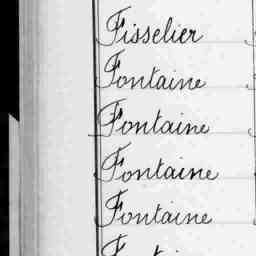 Fisselier
Fontaine
Fontaine
Fontaine
Fontaine